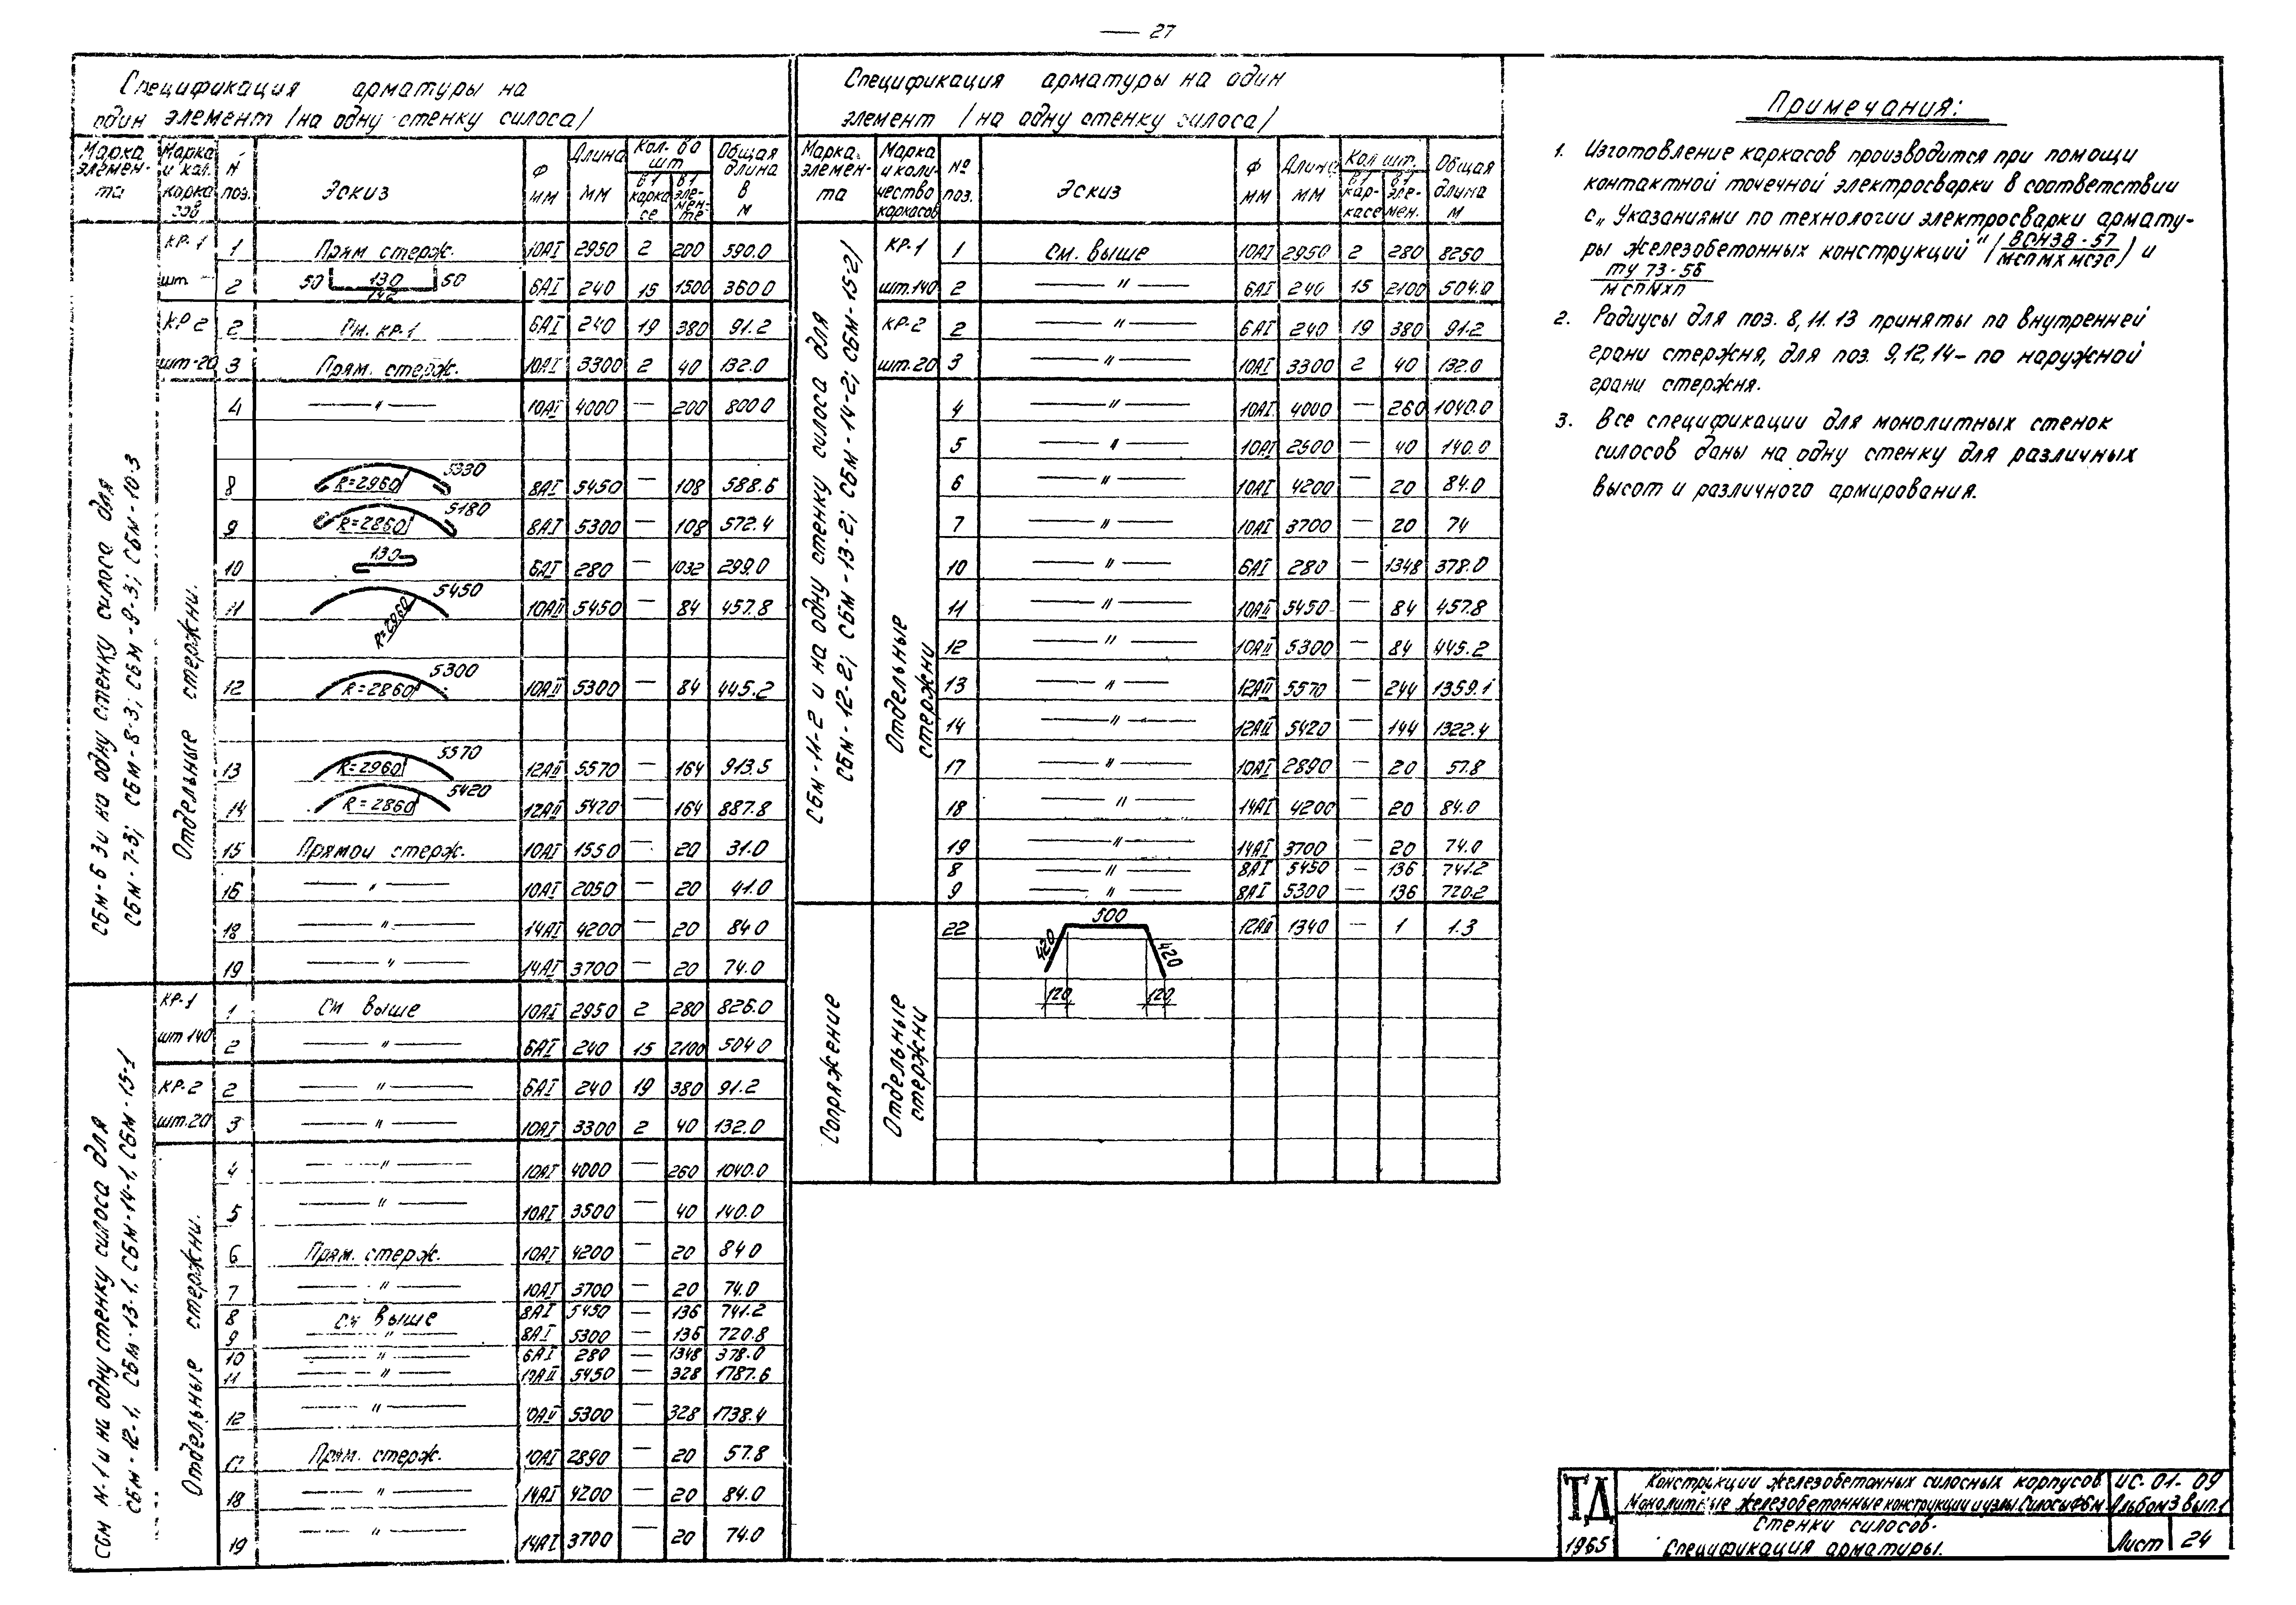 — 27
Спецификация арматуры на
один элемент /на одну стенку силоса/
Марка элемен- та | Марка и кол. карка зов | N поз. | Эскиз | Ф мм | Длина мм | Кол-во шт | в 1 карка се | в 1 эле- мен- те | Общая длина в м
СБМ-6-3 и на одну стенку силоса для
СБМ-7-3; СБМ-8-3; СБМ-9-3; СБМ-10-3
КР-1 | 1 | Прям стерж. | 10АI | 2950 | 2 | 200 | 590.0
шт | 2 | 50 130 50 142 | 6АI | 240 | 15 | 1500 | 360 0
КР 2 | 2 | См. КР-1 | 6АI | 240 | 19 | 380 | 91.2
шт-20 | 3 | Прям. стерж. | 10АI | 3300 | 2 | 40 | 132.0
Отдельные стержни.
4 | — " — | 10АI | 4000 | — | 200 | 800 0
8 | R=2960 5330 | 8АI | 5450 | — | 108 | 588.6
9 | R=2860 5180 | 8АI | 5300 | — | 108 | 572.4
10 | 130 | 6АI | 280 | — | 1032 | 299.0
11 | R=2960 5450 | 10АII | 5450 | — | 84 | 457.8
12 | R=2860 5300 | 10АII | 5300 | — | 84 | 445.2
13 | R=2960 5570 | 12АII | 5570 | — | 164 | 913.5
14 | R=2860 5420 | 12АII | 5420 | — | 164 | 887.8
15 | Прямой стерж. | 10АI | 1550 | — | 20 | 31.0
16 | — " — | 10АI | 2050 | — | 20 | 41.0
18 | — " — | 14АI | 4200 | — | 20 | 84 0
19 | — " — | 14АI | 3700 | — | 20 | 74.0
СБМ 11-1 и на одну стенку силоса для
СБМ-12-1, СБМ-13-1, СБМ-14-1, СБМ-15-1
КР-1 | 1 | См выше | 10АI | 2950 | 2 | 280 | 826.0
шт 140 | 2 | — " — | 6АI | 240 | 15 | 2100 | 504 0
КР-2 | 2 | — " — | 6АI | 240 | 19 | 380 | 91.2
шт.20 | 3 | — " — | 10АI | 3300 | 2 | 40 | 132.0
Отдельные стержни.
4 | — " — | 10АI | 4000 | — | 260 | 1040.0
5 | — " — | 10АI | 3500 | | 40 | 140.0
6 | Прям. стерж. | 10АI | 4200 | — | 20 | 84 0
7 | — " — | 10АI | 3700 | — | 20 | 74.0
8 | См выше | 8АI | 5450 | — | 136 | 741.2
9 | — " — | 8АI | 5300 | — | 136 | 720.8
10 | — " — | 6АI | 280 | — | 1348 | 378.0
11 | — " — | 10АII | 5450 | — | 328 | 1787.6
12 | — " — | 10АII | 5300 | — | 328 | 1738.4
17 | Прям. стерж. | 10АI | 2890 | — | 20 | 57.8
18 | — " — | 14АI | 4200 | — | 20 | 84.0
19 | — " — | 14АI | 3700 | — | 20 | 74.0
Спецификация арматуры на один
элемент /на одну стенку силоса/
Марка элемен- та | Марка и коли- чество каркасов | № поз. | Эскиз | Ф мм | Длина мм | Кол шт. | в 1 кар- касе | в 1 эле- мен. | Общая длина м
СБМ-11-2 и на одну стенку силоса для
СБМ-12-2; СБМ-13-2; СБМ-14-2; СБМ-15-2/
КР-1 | 1 | см. выше | 10АI | 2950 | 2 | 280 | 8250
шт.140 | 2 | — " — | 6АI | 240 | 15 | 2100 | 504.0
КР-2 | 2 | — " — | 6АI | 240 | 19 | 380 | 91.2
шт.20 | 3 | — " — | 10АI | 3300 | 2 | 40 | 132.0
Отдельные стержни
4 | — " — | 10АI | 4000 | — | 260 | 1040.0
5 | — " — | 10АI | 2500 | — | 40 | 140.0
6 | — " — | 10АI | 4200 | — | 20 | 84.0
7 | — " — | 10АI | 3700 | — | 20 | 74
10 | — " — | 6АI | 280 | — | 1348 | 378.0
11 | — " — | 10АII | 5450 | — | 84 | 457.8
12 | — " — | 10АII | 5300 | — | 84 | 445.2
13 | — " — | 12АII | 5570 | — | 244 | 1359.1
14 | — " — | 12АII | 5420 | — | 144 | 1322.4
17 | — " — | 10АI | 2890 | — | 20 | 57.8
18 | — " — | 14АI | 4200 | — | 20 | 84.0
19 | — " — | 14АI | 3700 | — | 20 | 74.0
8 | — " — | 8АI | 5450 | — | 136 | 741.2
9 | — " — | 8АI | 5300 | — | 136 | 720.2
Сопряжение
Отдельные стержни
22 | 500 420 420 120 120 | 12АII | 1340 | — | 1 | 1.3
Примечания:
1. Изготовление каркасов производится при помощи
контактной точечной электросварки в соответствии
с „Указаниями по технологии электросварки армату-
ры железобетонных конструкций" (ВСН38-57 / МСПМХМСЭС) и
ТУ 73-56 / МСПМХП
2. Радиусы для поз. 8, 11. 13 приняты по внутренней
грани стержня, для поз. 9,12,14- по наружной
грани стержня.
3. Все спецификации для монолитных стенок
силосов даны на одну стенку для различных
высот и различного армирования.
ТД
1965
Конструкции железобетонных силосных корпусов
Монолитные железобетонные конструкции и узлы. Силосы ф6м
Стенки силосов.
Спецификация арматуры.
ИС-01-09
Альбом 3 вып.1
Лист 24